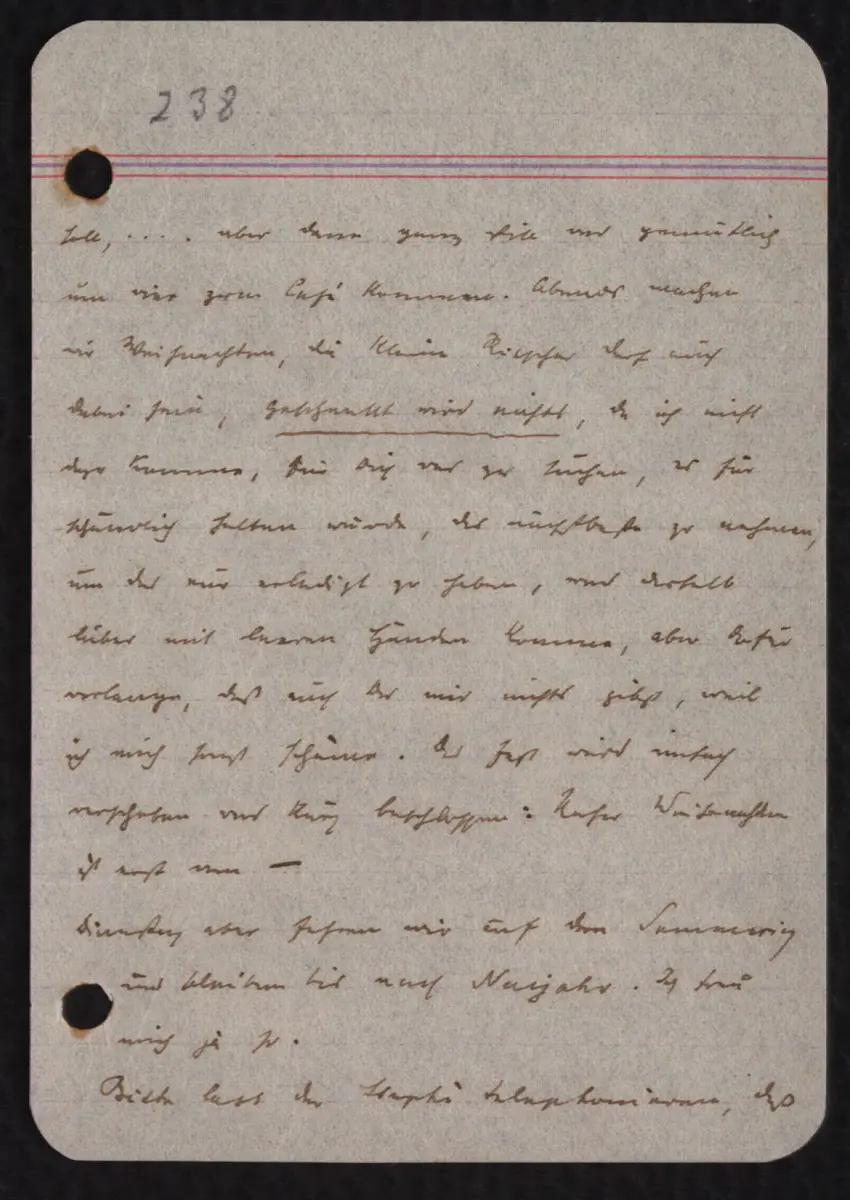 238
soll, .... aber dann ganz still und gemütlich
um vier zum Café kommen. Abends machen
wir Weihnachten, die kleine Rieser darf auch
dabei sein, geschenkt wird nichts, da ich nicht
dazu komme, für Dich was zu suchen, es für
schändlich halten würde, das nächstbeste zu nehmen,
um das nur erledigt zu haben, und deshalb
lieber mit leeren Händen komme, aber dafür
verlange, daß auch Du mir nichts gibst, weil
ich mich sonst schäme. Das Fest wird einfach
verschoben und kurz beschlossen: Unser Weihnachten
ist erst am —
Dienstag aber fahren wir auf den Semmering
und bleiben bis nach Neujahr. Ich freu
mich ja so.
Bitte lass der Stephi telephonieren, daß